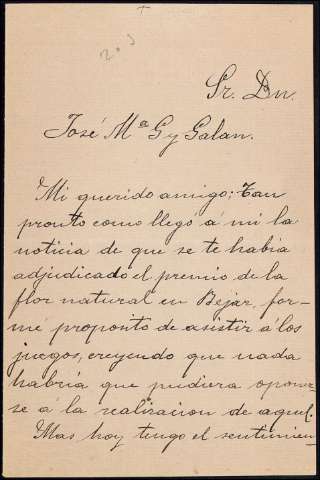 Sr. Dn.
José Mª G y Galan.
Mi querido amigo: Tan
pronto como llegó á mi la
noticia de que se te habia
adjudicado el premio de la
flor natural en Bejar, for-
mé proposito de asistir á los
juegos, creyendo que nada
habria que pudiera oponer
se á la realizacion de aquel.
Mas hoy tengo el sentimien